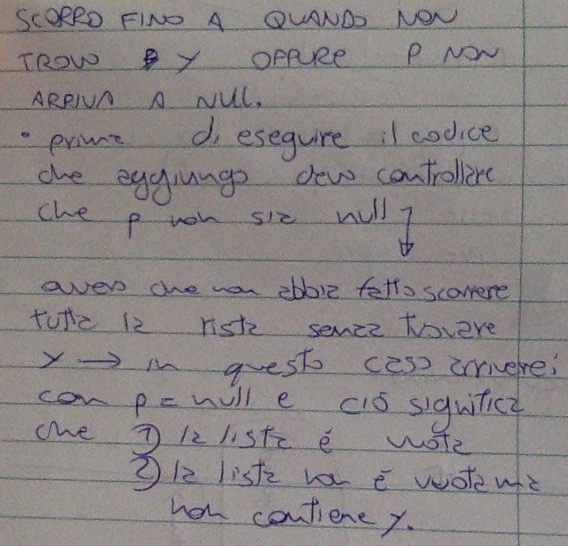 SCORRO FINO A QUANDO NON
TROVO Y OPPURE P NON
ARRIVA A NULL.
• prima di eseguire il codice
che aggiungo devo controllare
che p non sia null
ovvero che non abbia fatto scorrere
tutta la lista senza trovare
y → in questo caso arriverei
con p = null e ciò significa
che 1) la lista é vuota
2) la lista non é vuota ma
non contiene y.